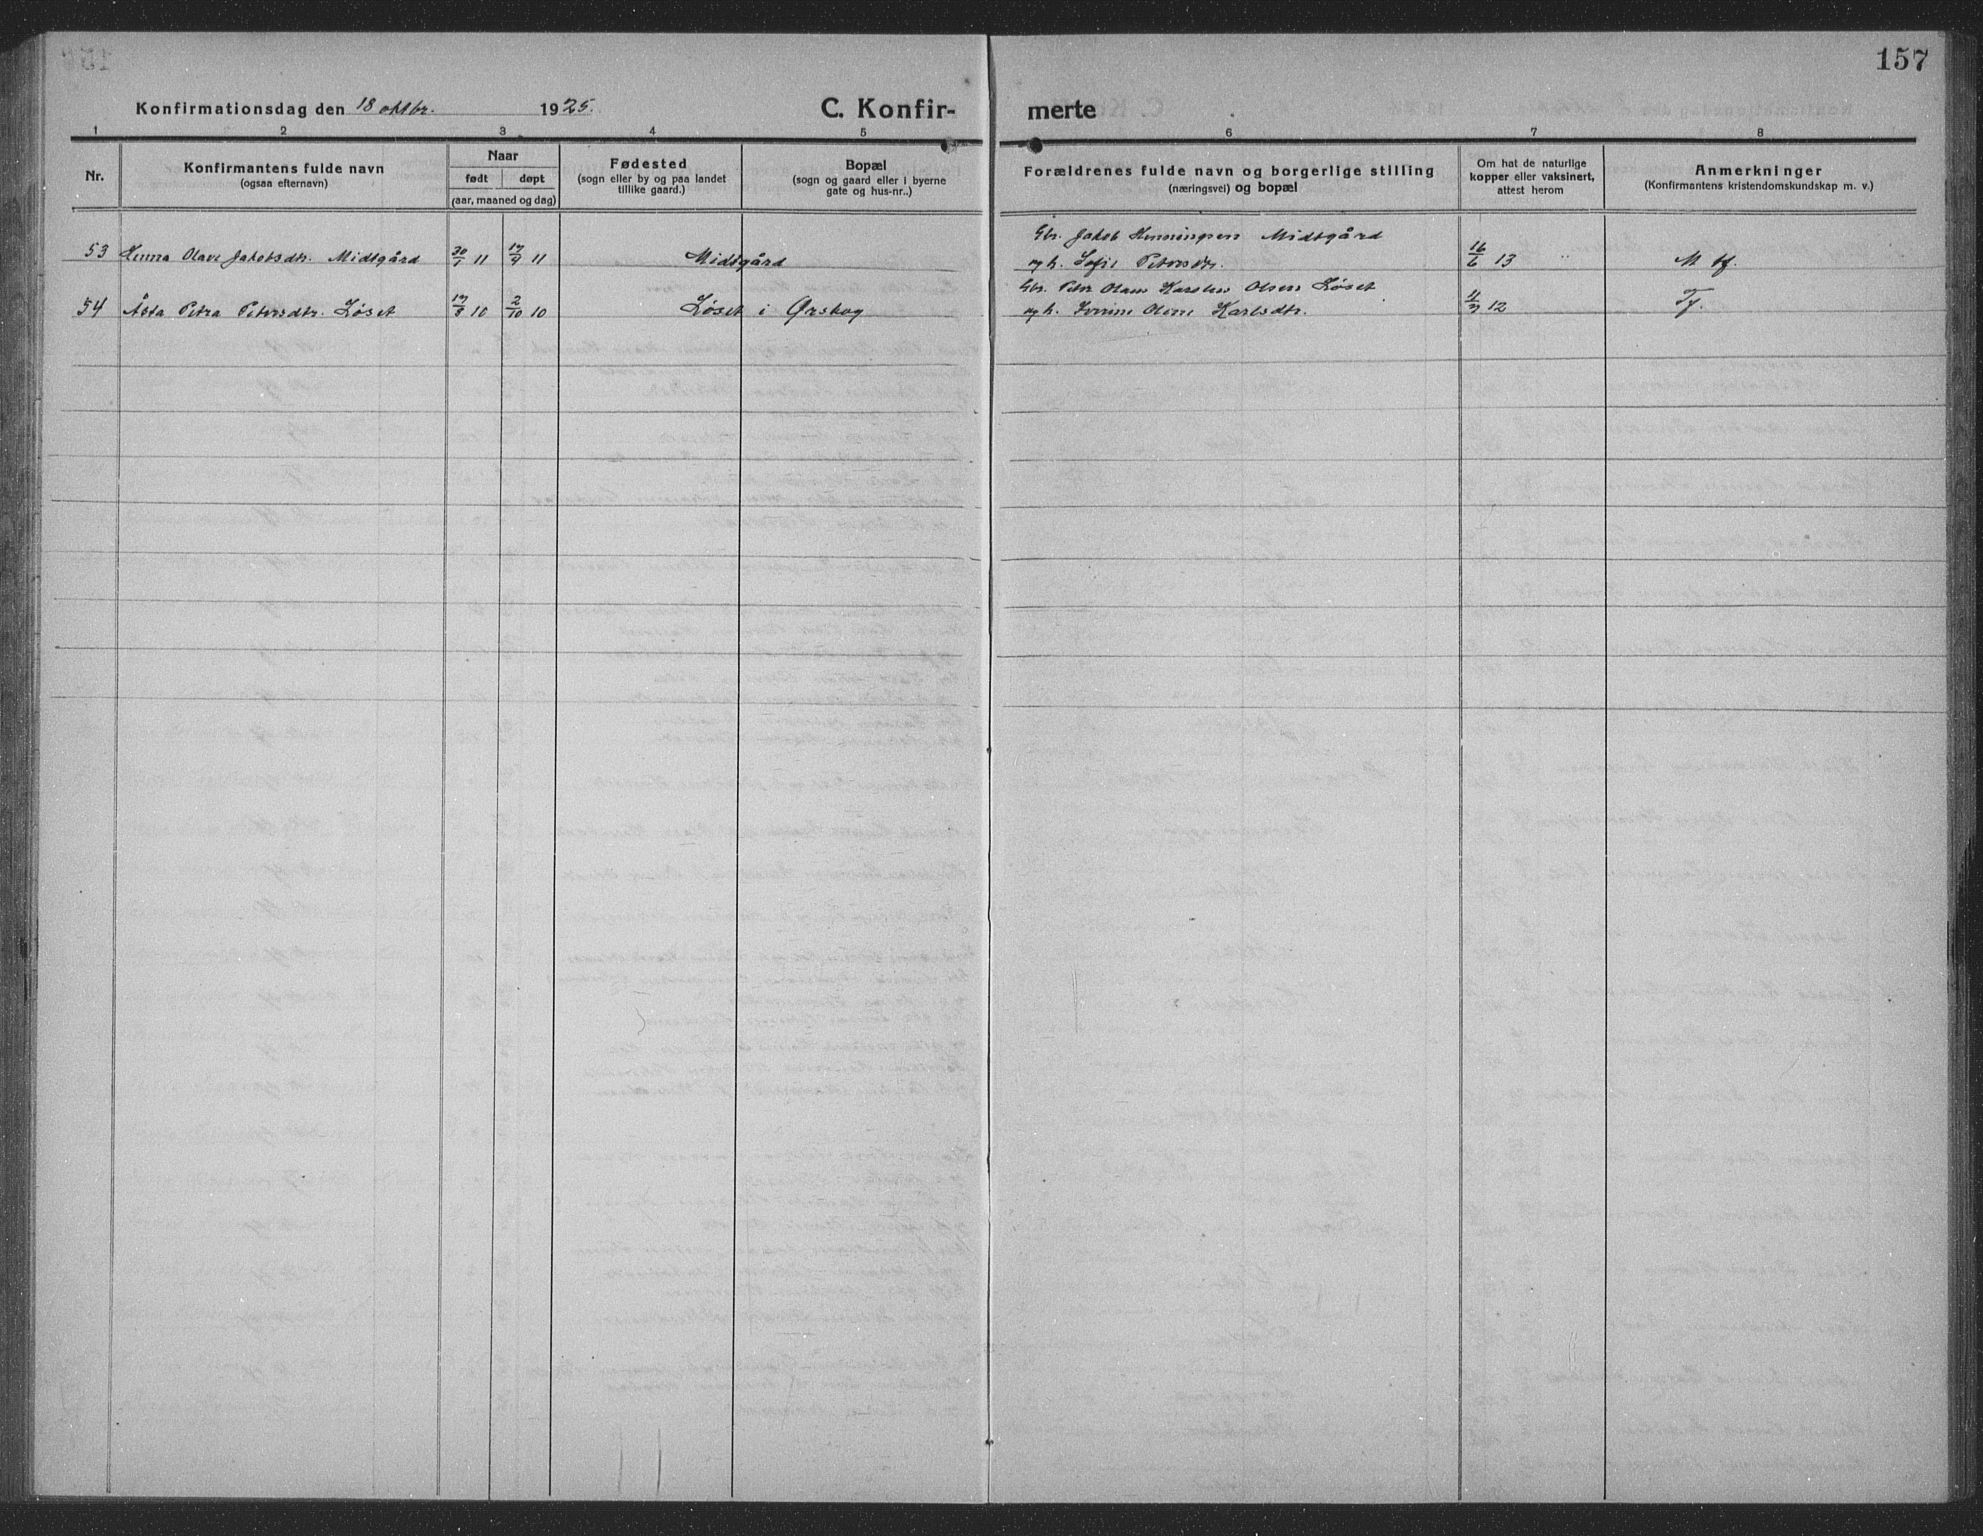 157
Konfirmationsdag den 18 oktbr. 1925.
C. Konfir-
merte
1 2 3 4 5 6 7 8
Nr.
Konfirmantens fulde navn
(ogsaa efternavn)
Naar
født døpt
(aar, maaned og dag)
Fødested
(sogn eller by og paa landet
tillike gaard.)
Bopæl
(sogn og gaard eller i byerne
gate og hus-nr..)
Forældrenes fulde navn og borgerlige stilling
(næringsvei) og bopæl
Om hat de naturlige
kopper eller vaksinert,
attest herom
Anmerkninger
(Konfirmantens kristendomskundskap m. v.)
Gbr. Jakob Henningsen Midtgård
53 Henna Olave Jakobsdtr. Midtgård 11 11 Midtgård og h. Sofie Petersdtr. 16/6 13 " M tf.
Gbr. Petr Olaus Karolus Olsen Løset
54 Åsta Petra Petersdtr. Løset 10 2/10 10 Løset i Ørskog og h. Iverine Oline Karlsdtr. 12 Tf.